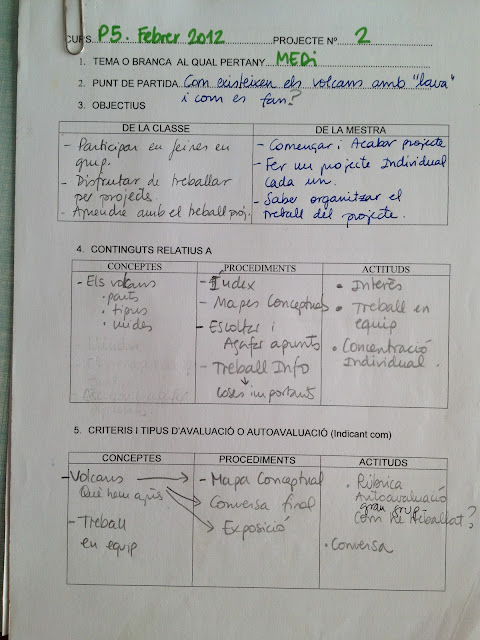 CURS P5. Febrer 2012 PROJECTE Nº 2
1. TEMA O BRANCA AL QUAL PERTANY MEDi
2. PUNT DE PARTIDA Com existeixen els volcans amb "lava"
i com es fan?
3. OBJECTIUS
DE LA CLASSE
- Participar en feines en
grup.
- Disfrutar de treballar
per projects.
- Aprendre amb el treball proj.
DE LA MESTRA
- Començar i Acabar projecte
- Fer un projecte Individual
cada un.
- Saber organitzar el
treball del projecte.
4. CONTINGUTS RELATIUS A
CONCEPTES
- Els volcans
· parts
· tipus
· mides
PROCEDIMENTS
- Índex
- Mapes Conceptuals
- Escoltar i
Agafar apunts
- Treball Info
coses importants
ACTITUDS
• Interès
• Treball en
equip
• Concentració
Individual.
5. CRITERIS I TIPUS D'AVALUACIÓ O AUTOAVALUACIÓ (Indicant com)
CONCEPTES
- Volcans
Què hem après
- Treball
en equip
PROCEDIMENTS
- Mapa Conceptual
Conversa final
Exposició
ACTITUDS
• Rúbrica
Autoavaluació
gran grup
Com he treballat?
• Conversa